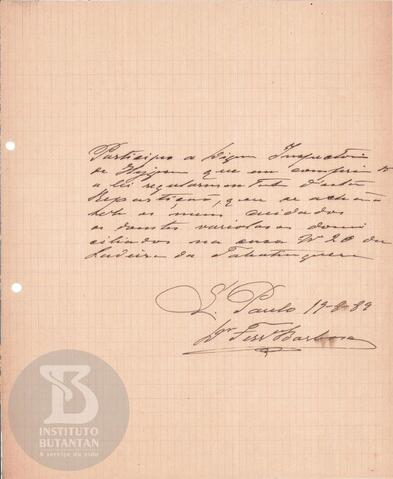 Participo a Digna Inspectoria
de Hygiene que em
a lei desta
Repartição, que se acham
sob os meus cuidados
os doentes variolosos domi
ciliados na casa Nº 20 da
Ladeira da Tabatinguera
S. Paulo 19-8-89
Dr Ferrª Barbosa
INSTITUTO
BUTANTAN
A serviço da vida